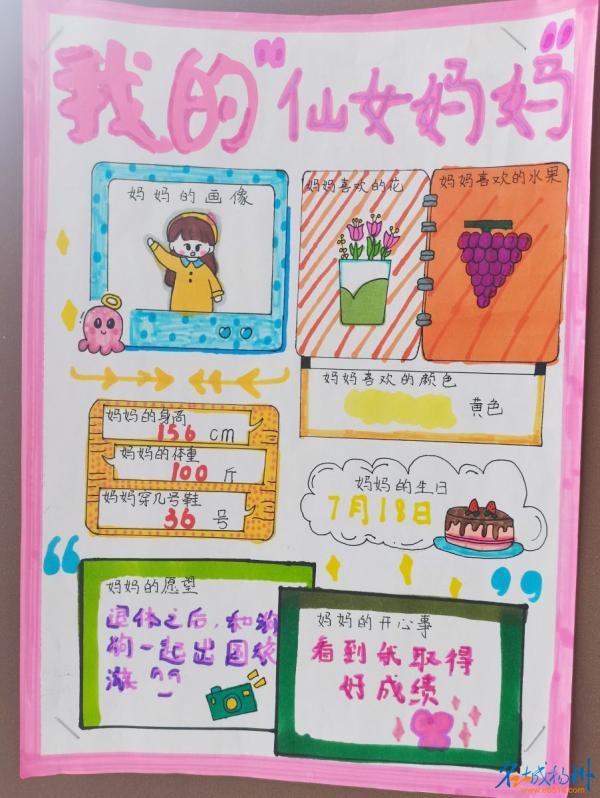 我的"仙女妈妈"
妈妈的画像
妈妈喜欢的花
妈妈喜欢的水果
妈妈喜欢的颜色
黄色
妈妈的身高
156 cm
妈妈的体重
100 斤
妈妈穿几号鞋
36 号
妈妈的生日
7月18日
妈妈的愿望
退休之后,和狗
狗一起出国旅
游
妈妈的开心事
看到我取得
好成绩